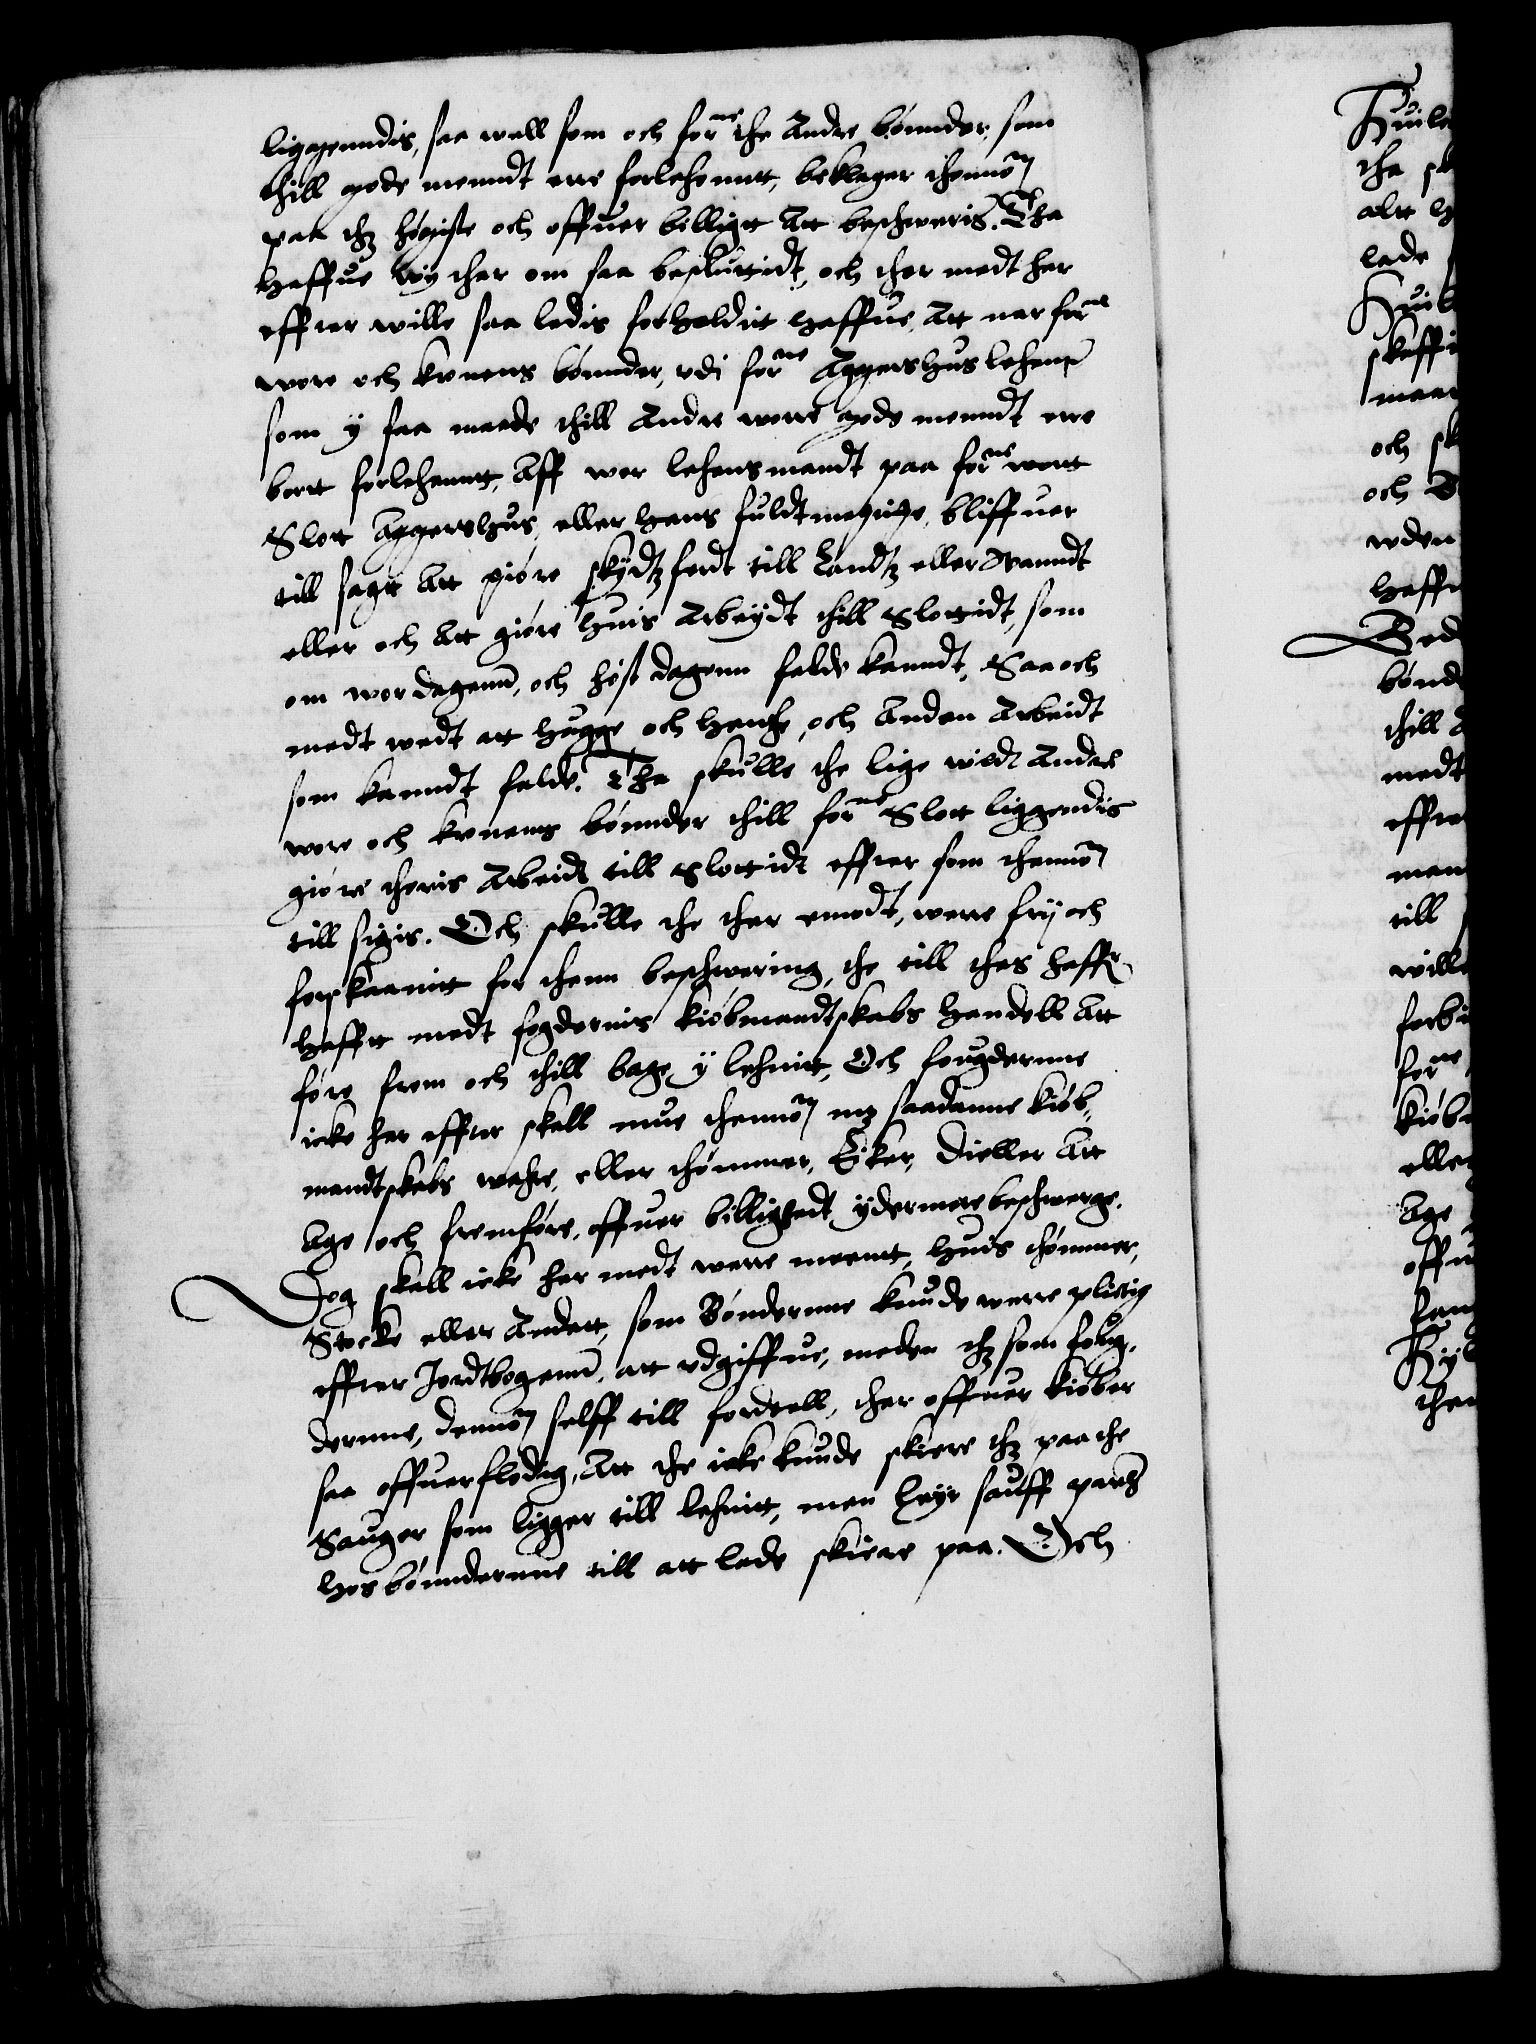 liggenndis, saa well som och forne the Andre bønnder, som
thill gode menndt ere forlehenntt, beklager thennom
paa thz høgiste och offuer billigtt Att beschweris. Tha
haffue wy ther om saa besluttidt, och ther medt her
effter wille saa ledis forholditt haffue, Att nar forne
wore och kronens bønnder, vdi forne Aggershus lehenn
som y saa maade thill Andre worre gode menndt ere
bortt forlehenntt, Aff wor lehensmandt paa forne wortt
Slott Aggershus, eller hans fuldtmegtige, bliffuer
till sagtt Att giøre skydtzferdt till Landtz eller wanndt
eller och Att giøre huis Arbeydt thill Slottidt, som
om wordagenn, och høst dagenn falde kanndt, Saa och
medt wedt att hugge och hente, och Anden Arbeidt
som kanndt falde. Tha skulle the lige widt Andre
wore och kronens bønnder thill forne Slott liggendis
giøre theris Arbeidt till Slottidt effter som thennom
till sigis. Och skulle the ther emodt, were fry och
forskaanitt for thenn beschwering, the till thes haffr
hafftt medt fogdernis kiøbmandtskabs handell Att
føre frem och thill bage y lehnitt, Och fougderne
icke her effter skall mue thennom mz saadanne kiøb
mandtskabs wahre, eller thømmer, Eker, Dieller Att
Age och fremføre, offuer billighedt ydermere beschwerge.
Dog skall icke her medt were meentt, huis thømmer,
Stocke eller Andett, som Bønderne kunde were plictig
effter Jordtbogenn, att vdgiffue, meden thz som foug-
derne, dennom selff till fordeell, ther offuer kiøber
saa offuerflødig, Att the icke kunde skiere thz paa the
Sauger som ligger till lehnitt, men leye sauff
hos bønnderne till att lade skiere paa. Och